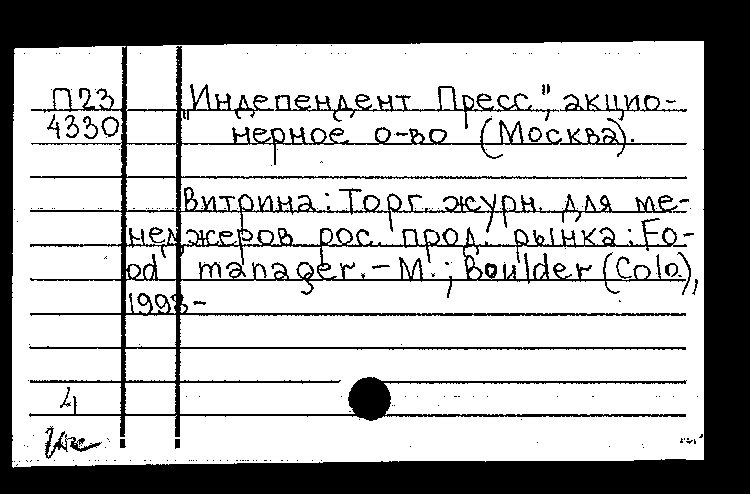 П23
4330
"Индепендент Пресс", акцио-
нерное о-во (Москва).
Витрина: Торг. журн. для ме-
неджеров рос. прод. рынка: Fo-
od manager. - М.; Boulder (Colo),
1998-
4